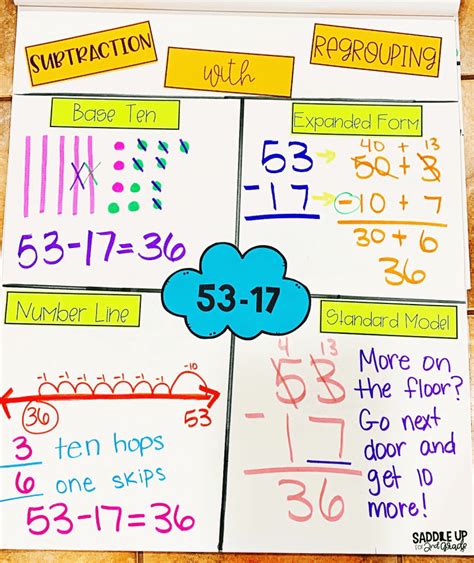 SUBTRACTION
with
REGROUPING
Base Ten
53-17=36
Expanded Form
40 + 13
53 → 50 + 3
-17 → -10 + 7
30 + 6
36
53-17
Number Line
-1 -1 -1 -1 -1 -1 -1 -10
36 53
3 ten hops
6 one skips
53-17=36
Standard Model
4 13
53
-17
36
More on
the floor?
Go next
door and
get 10
more!
SADDLE UP
for 2nd Grade